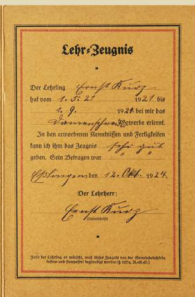 Lehr-Zeugnis
Der Lehrling Ernst Kurz
hat vom 1. 5. 21 1921 bis
1. 9. 1924 bei mir das
Damenschneid gewerbe erlernt.
In den erworbenen Kenntnissen und Fertigkeiten
kann ich ihm das Zeugnis sehr gut
geben. Sein Betragen war
Eßlingen den 12. Okt. 1924.
Der Lehrherr:
Ernst Kurz